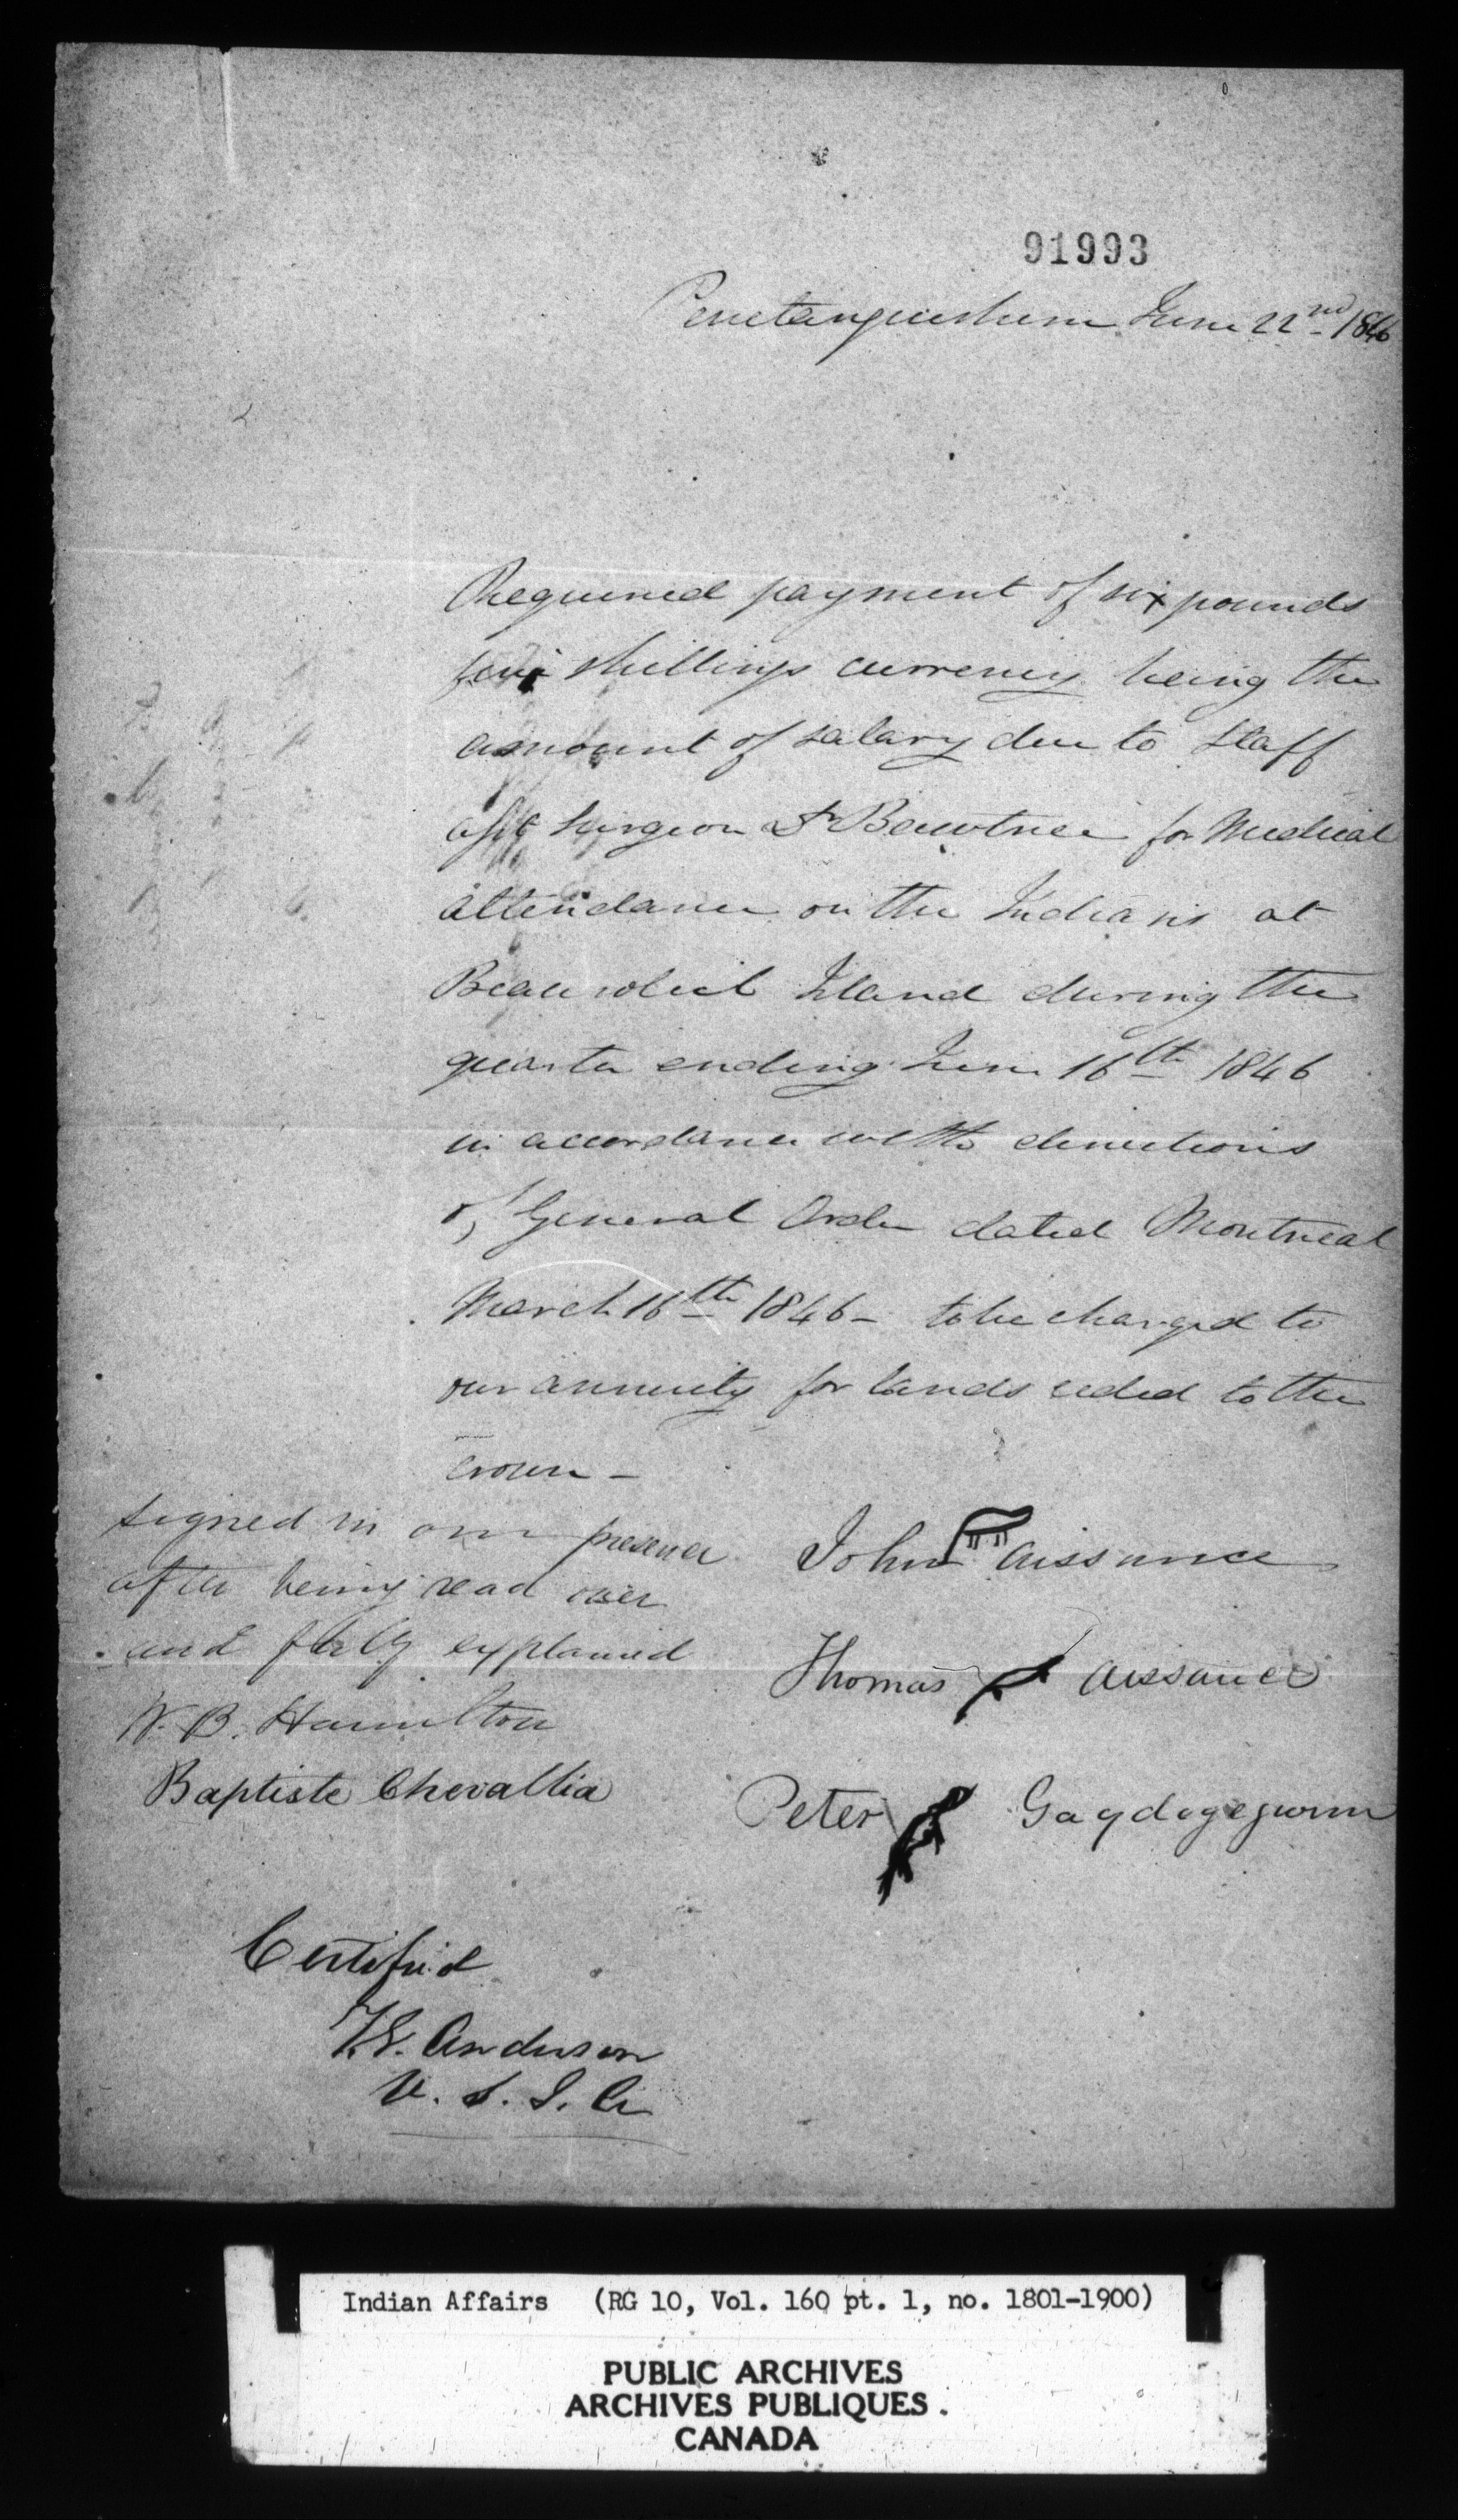 91993
Penetanguishene June 22nd 1846
Required payment of six pounds
shillings currency being the
amount of salary due to Staff
asst Surgeon Dr Bawtree for Medical
attendance on the Indians at
Beausoleil Island during the
quarter ending June 16th 1846
in accordance with directions
of General Order dated Montreal
March 16th 1846 - to be charged to
our annuity for lands ceded to the
crown -
signed in our presence
after being read over
and fully explained
W. B. Hamilton
Baptiste Chevallia
John Aissance
Thomas Aissance
Peter
Certified
T.G. Anderson
V. S. I. A
Indian Affairs (RG 10, Vol. 160 pt. 1, no. 1801-1900)
PUBLIC ARCHIVES
ARCHIVES PUBLIQUES
CANADA